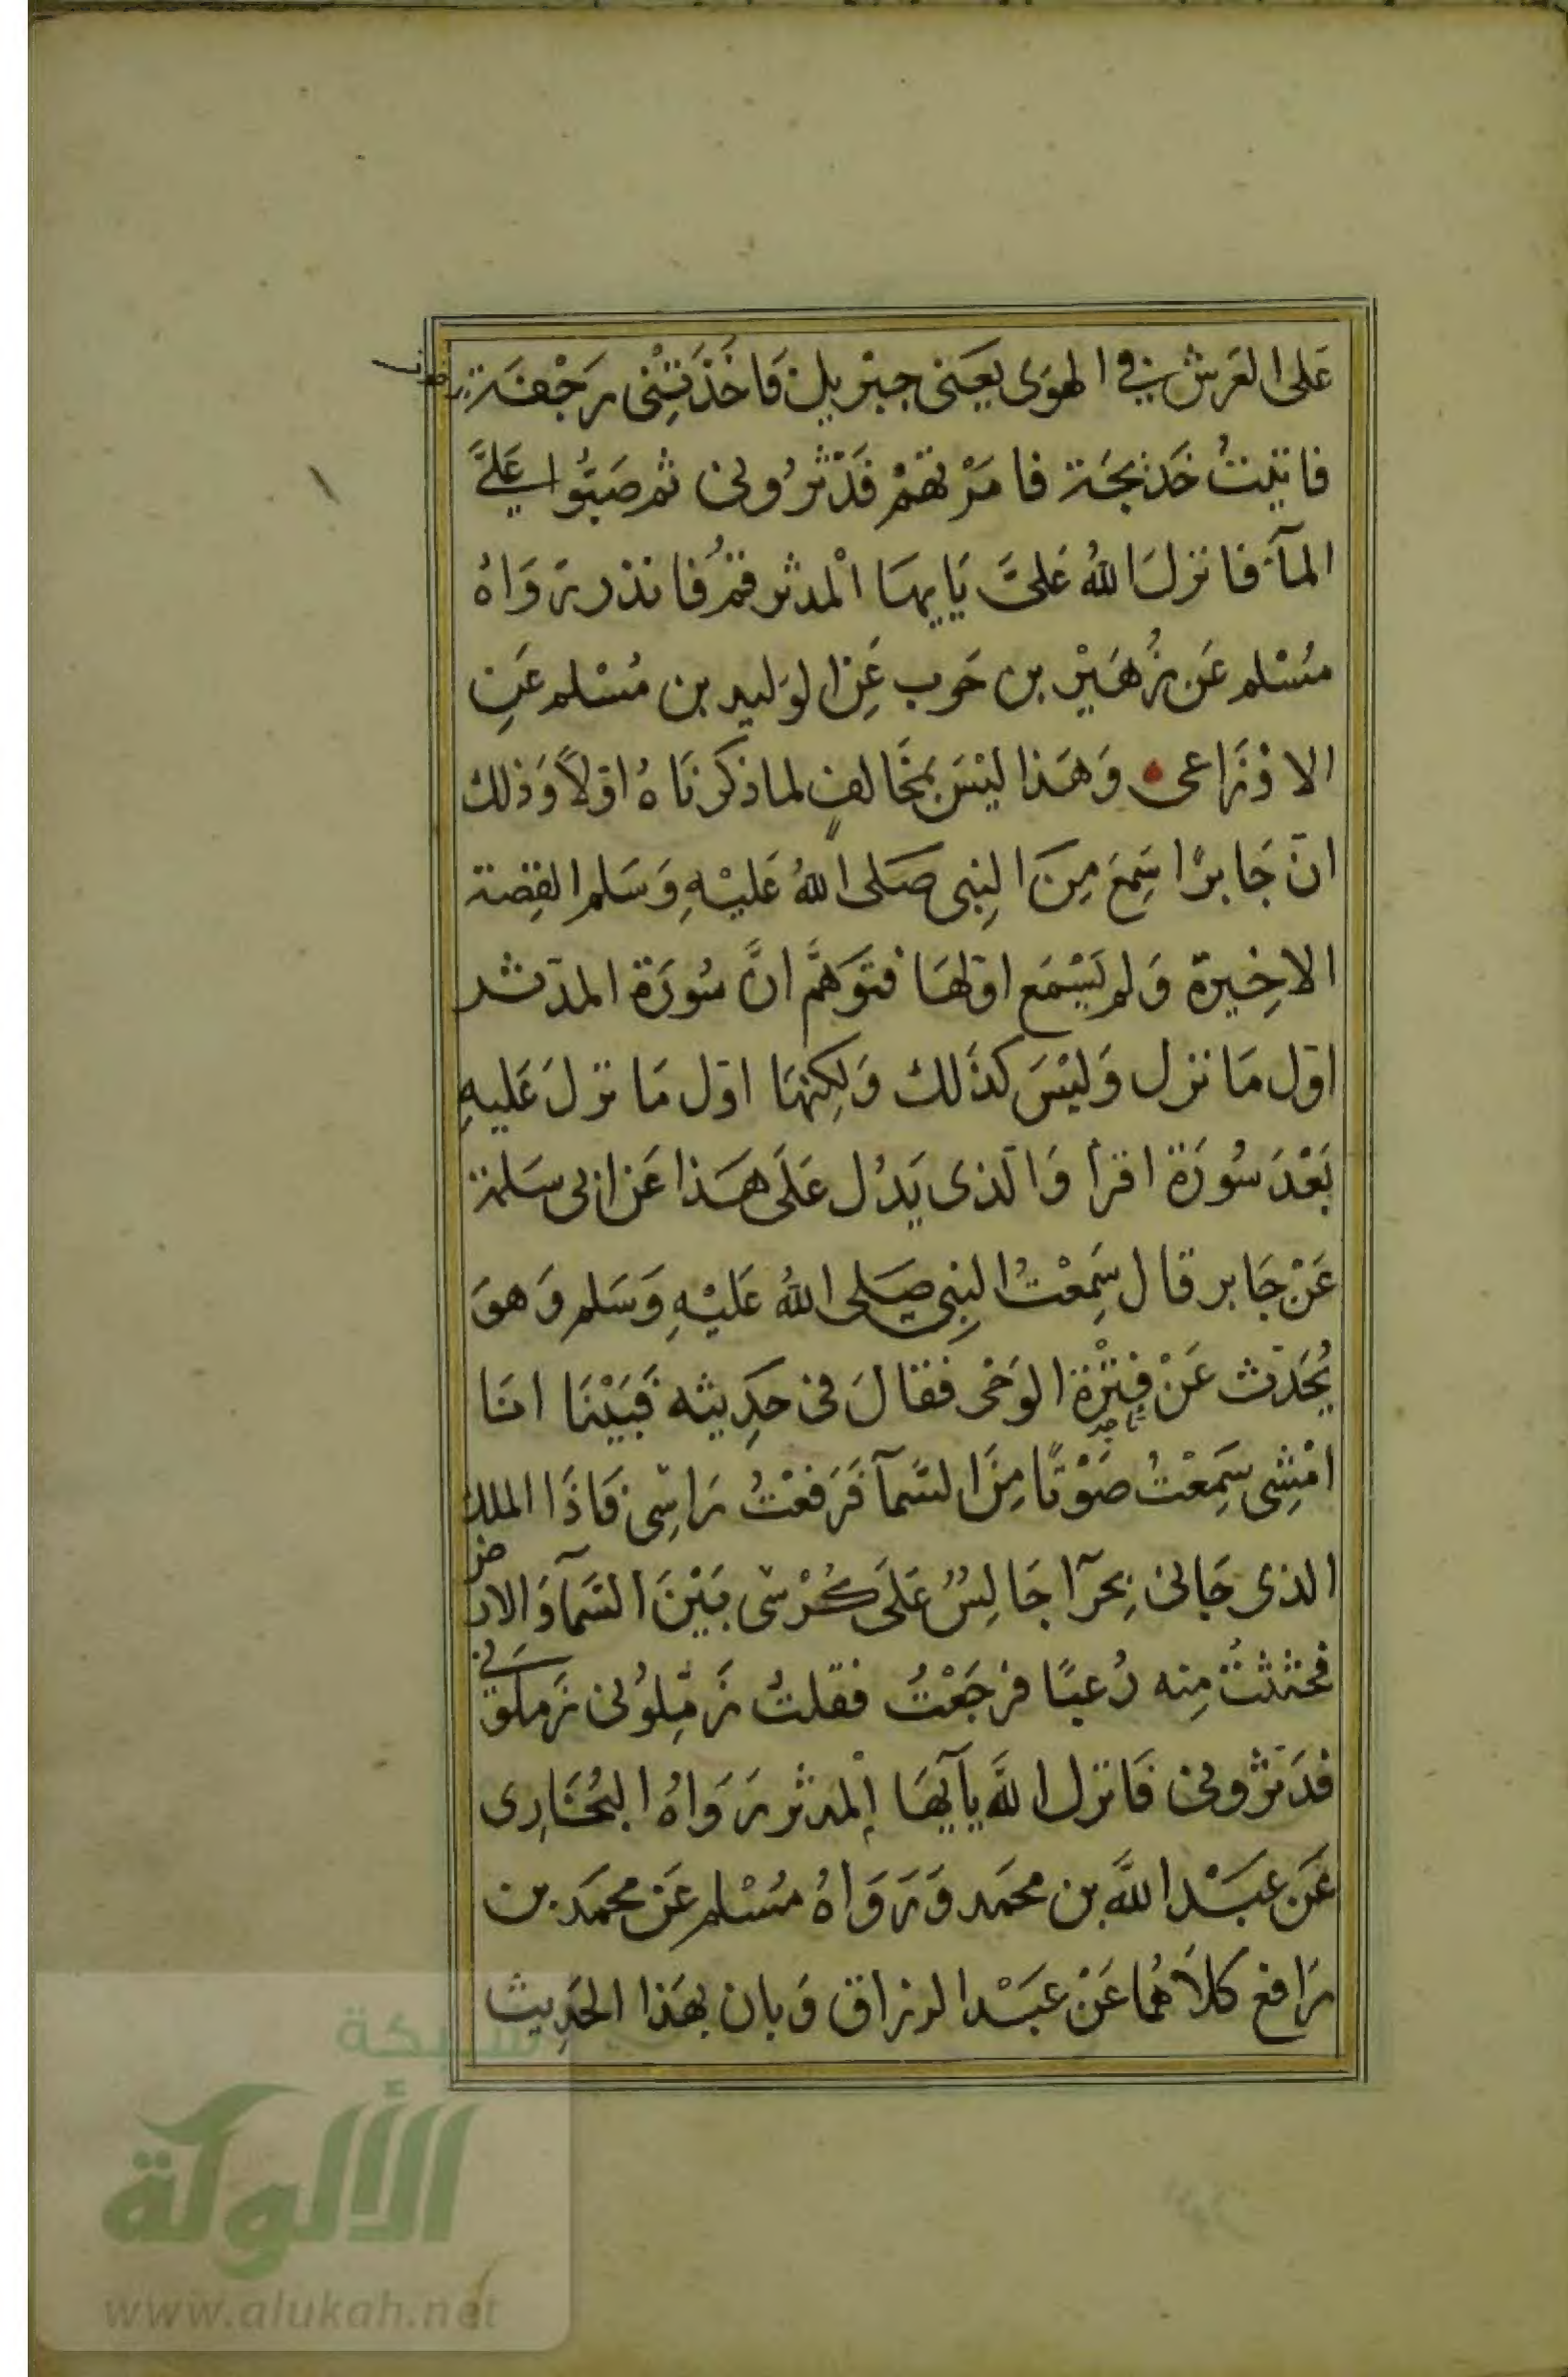 عَلى العَرش في الهَوَى يَعنى جبْريل فَاخَذَتْنِى رَجْفَة
فاتيتُ خَديجَة فامَرْتهُمْ فَدَثرُونى ثم صَبُّوا عَلَيَّ
المآء فانزلَ اللهُ عَلىَّ يَايهَا الْمدثر قمْ فَانذر رَوَاهُ
مُسْلم عَن زُهَيْر بن حَرب عَنِ الوَليد بن مُسْلم عَنِ
الاوْزَاعى وَهَذا ليْسَ بمخَالفٍ لما ذكرنَاهُ اوّلاً وَذلك
انّ جَابرًا سَمِعَ مِنَ النبِى صَلى اللهُ عَليْهِ وَسَلم القِصة
الاخِيرة وَلم يَسْمَع اوّلهَا فتَوَهَّمَ انَّ سُورَة المدّثر
اوّل مَا نزل وَليْسَ كذَلك وَلكِنهَا اوّل مَا نزلَ عَليهِ
بَعْدَ سُورَة اقرأ وَالّذى يَدُل عَلَى هَذا عَن ابى سَلمة
عَنْ جَابر قال سَمِعْتُ النبِى صَلى اللهُ عَليْهِ وَسَلم وَهوَ
يُحَدّث عَنْ فتْرَة الوَحْى فقالَ فى حَدِيثه فَبَيْنَا انَا
امْشِى سَمِعْتُ صَوْتًا مِنَ السَّمآ فَرَفعْتُ رَاسِى فَاذَا الملك
الذى جَانى بِحرَآ جَالِسٌ عَلَى كُرْسى بَيْنَ السَّمآ وَالارض
فجثثتُ مِنه رُعبًا فرجَعْتُ فقلتُ زَمّلوُنى زَملونى
فدَثرونى فَانزل اللهَ يآ أيهَا الْمدثر رَوَاهُ البُخَارِى
عَن عبَدْ اللهَ بن محمَد وَرَوَاهُ مُسْلم عَن محمَد بن
رَافع كلاَهُمَا عَنْ عبَدْ الرزاق وَبان بهَذا الحَدِيث
شبكة
الألوكة
www.alukah.net